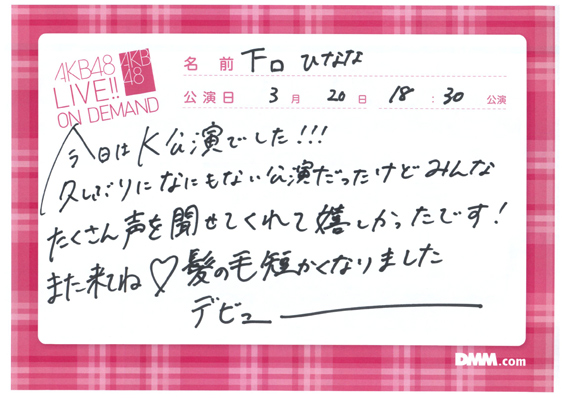 AKB48
LIVE!!
ON DEMAND
AKB
48
名前 下口ひなな
公演日 3月20日 18:30 公演
今日はK公演でした!!!
久しぶりになにもない公演だったけどみんな
たくさん声を聞せてくれて嬉しかったです!
また来てね♡髪の毛短かくなりました
デビュー
DMM.com